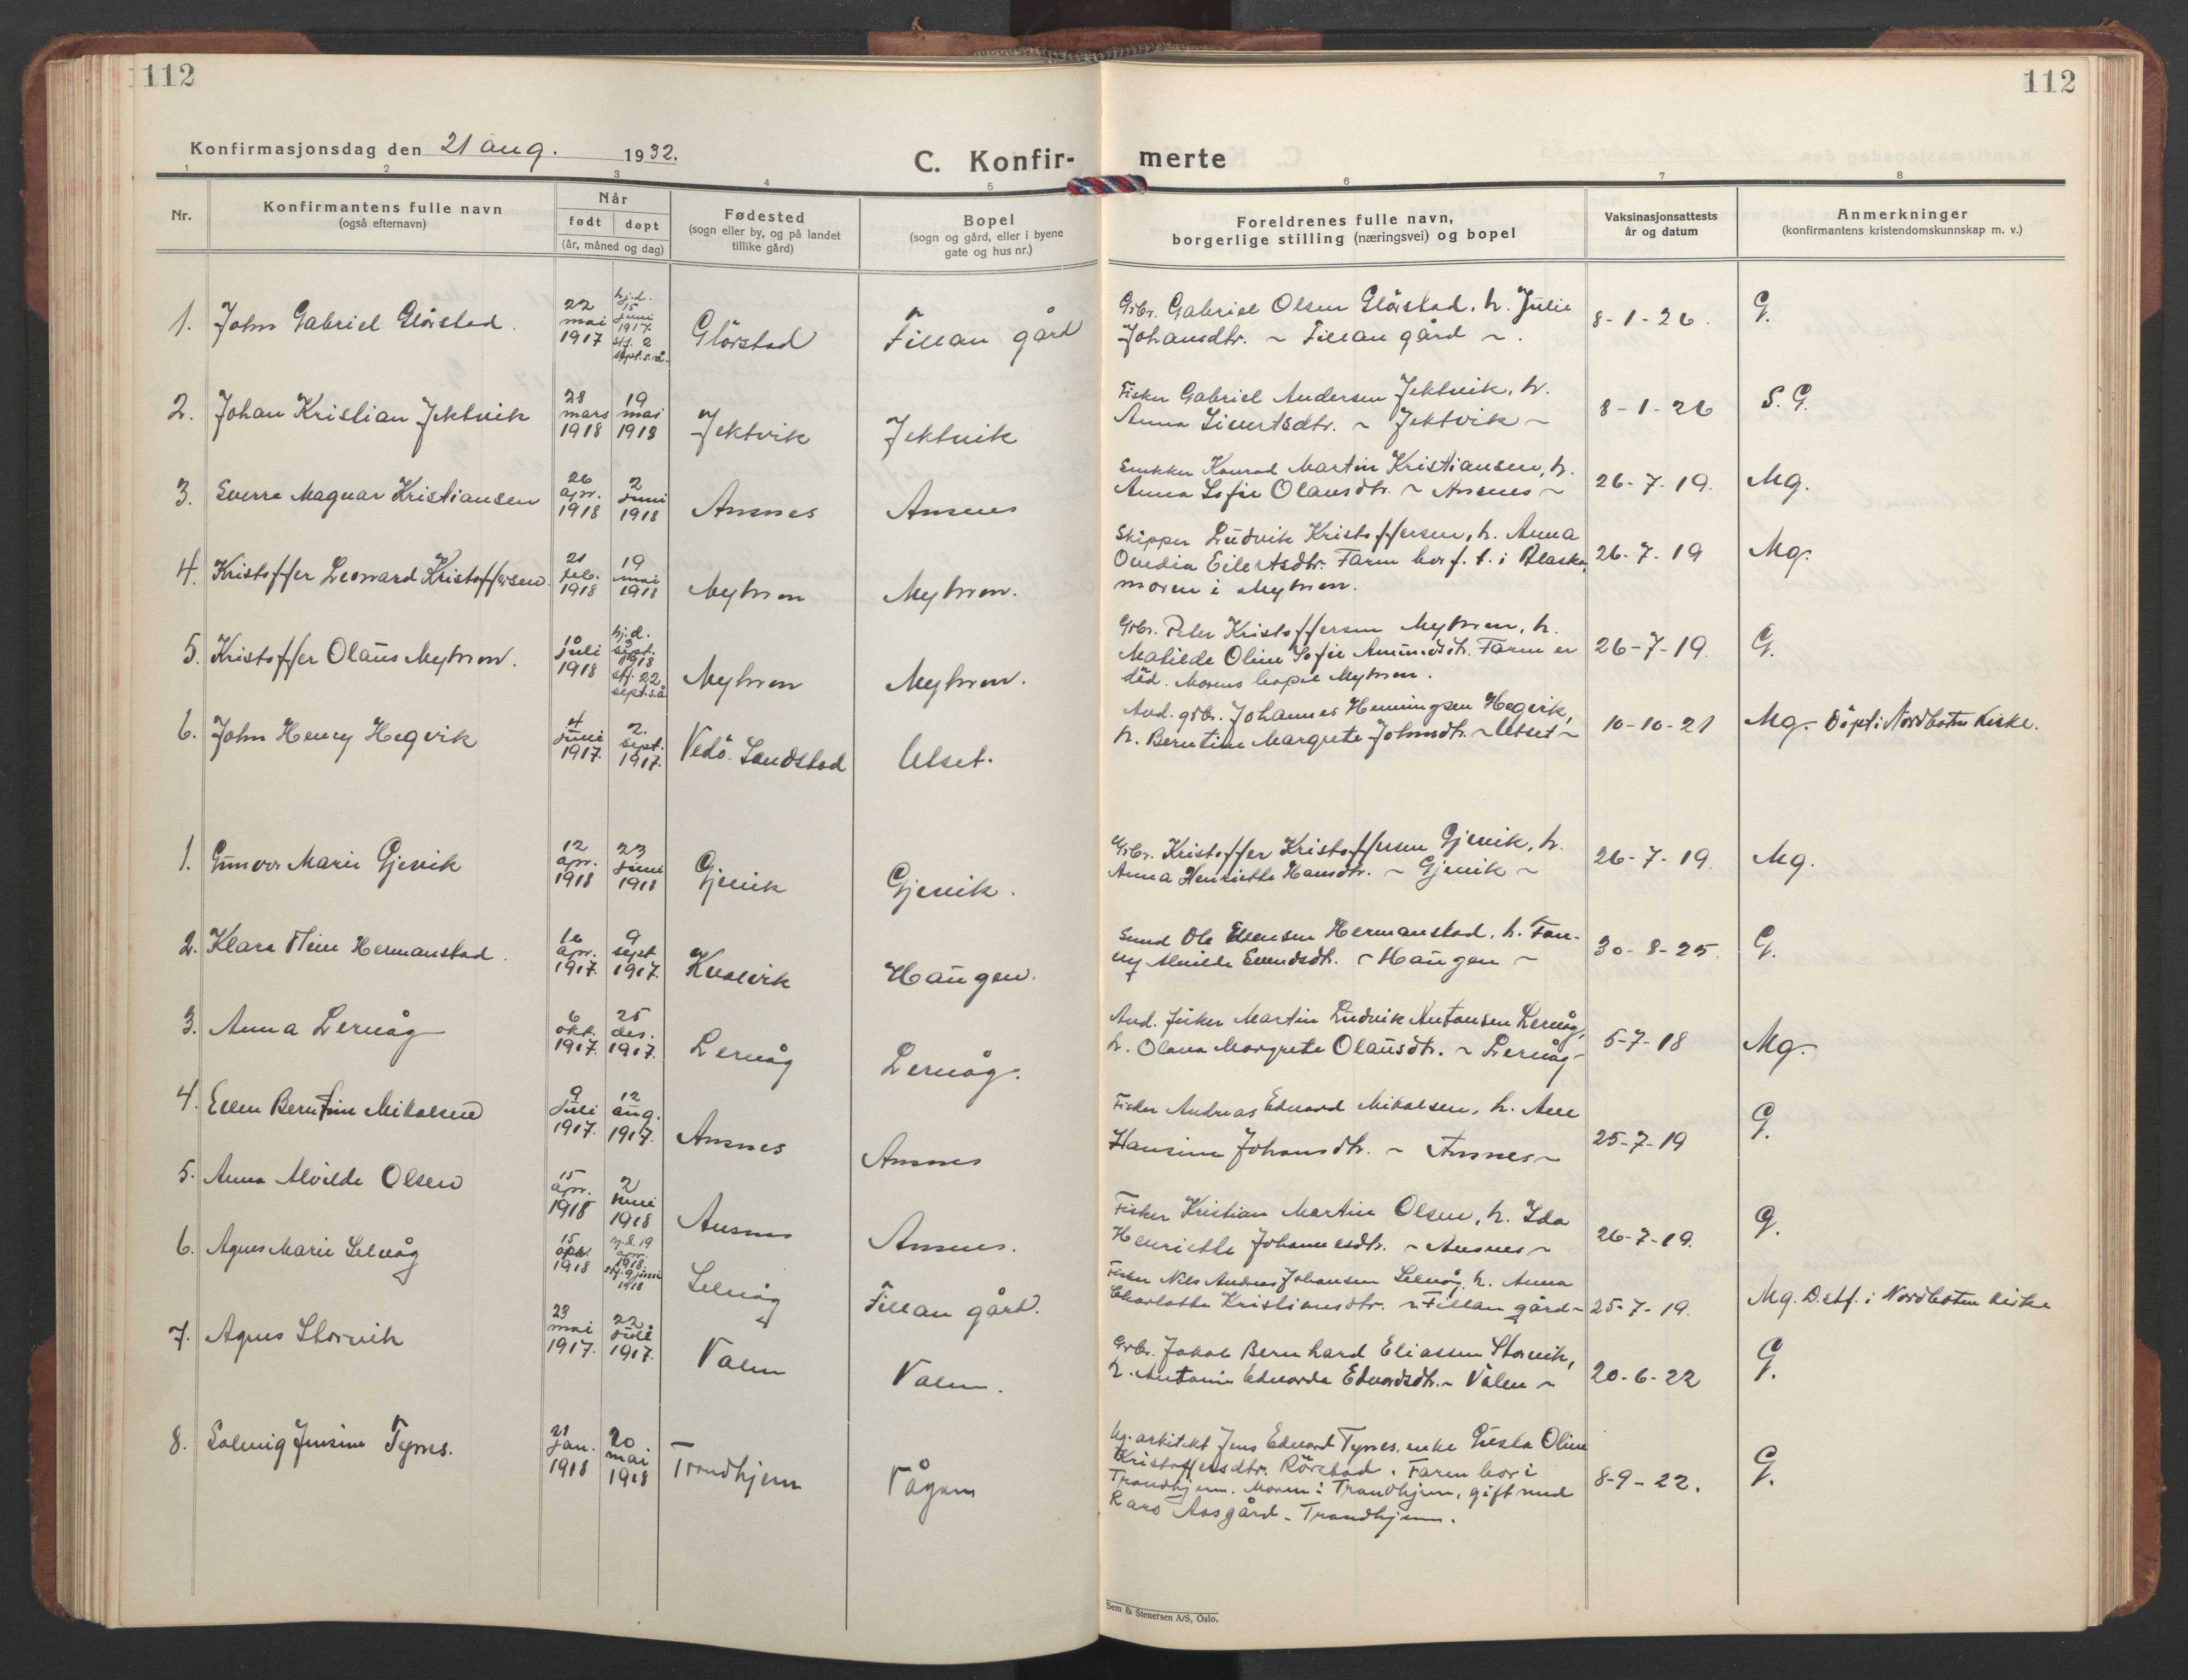 112
112
Konfirmasjonsdag den 21 aug. 1932.
C. Konfir- merte
1 2 3 4 5 6 7 8
Nr.
Konfirmantens fulle navn
(også efternavn)
Når
født døpt
(år, måned og dag)
Fødested
(sogn eller by, og på landet
tillike gård)
Bopel
(sogn og gård, eller i byene
gate og hus nr.)
Foreldrenes fulle navn,
borgerlige stilling (næringsvei) og bopel
Vaksinasjonsattests
år og datum
Anmerkninger
(konfirmantens kristendomskunnskap m. v.)
1. John Gabriel Glörstad.
22 mai 1917
hj.d. 15 juni 1917. stf. 2 sept. s.å.
Glörstad
Fillan gård
Grbr. Gabriel Olsen Glörstad, h. Julie
Johansdtr. ~ Fillan gård ~.
8-1-26.
G.
2. Johan Kristian Jektvik
28 mars 1918
19 mai 1918
Jektvik
Jektvik
Fisker Gabriel Andersen Jektvik, h.
Anna Sivertsdtr. ~ Jektvik ~
8-1-26
S.G.
3. Sverre Magnar Kristiansen
26 apr. 1918
2 juni 1918
Ansnes
Ansnes
Snekker Konrad Martin Kristiansen, h.
Anna Sofie Olausdtr. ~ Ansnes ~
26-7-19.
Mg.
4. Kristoffer Leonard Kristoffersen
21 feb. 1918
19 mai 1918
Myhren
Myhren.
Skipper Ludvik Kristoffersen, h. Anna
Ovedia Eilertsdtr. Faren bor f. t. i Alaska,
moren i Myhren.
26-7-19
Mg.
5. Kristoffer Olaus Myhren.
10 juli 1918
hj.d. sept. 1918 stf. 22 sept. s.å
Myhren
Myhren.
Grbr. Peter Kristoffersen Myhren, h.
Matilde Oline Sofie Amundsdtr. Faren er
död. Morens bopel Myhren.
26-7-19.
G.
6. John Henry Hegvik
4 juni 1917.
2. sept. 1917.
Vedö. Sandstad
Ulset.
And. grbr. Johannes Henningsen Hegvik,
h. Berntine Margrete Johnsdtr. ~ Ulset ~
10-10-21
Mg. Döpt i Nordbotn kirke.
1. Gunvor Marie Gjevik
12 apr. 1918
23 juni 1918
Gjevik
Gjevik.
Grbr. Kristoffer Kristoffersen Gjevik, h.
Anna Henriette Hansdtr. ~ Gjevik ~
26-7-19.
Mg.
2. Klara Hermanstad.
16 apr. 1917.
9 sept 1917.
Kvalvik
Haugen.
Ole Hermanstad, h. Fan-
ny Alvilde Svendsdtr. ~ Haugen ~
30-8-25.
G.
3. Anna Lervåg
6 okt. 1917.
25 des. 1917.
Lervåg
Lervåg.
And. fisker Martin Ludvik Antonsen Lervåg,
h. Olava Margrete Olausdtr. ~ Lervåg ~
5-7-18
Mg.
4. Ellen Berntine Mikalsen
9 juli 1917.
12 aug. 1917.
Ansnes
Ansnes
Fisker Andreas Edvard Mikalsen, h.
Hansine Johansdtr. ~ Ansnes ~
25-7-19
G.
5. Anna Alvilde Olsen
15 apr. 1918
2 juni 1918
Ansnes
Ansnes.
Fisker Kristian Martin Olsen, h. Ida
Henriette Johannesdtr. ~ Ansnes ~
26-7-19.
G.
6. Agnes Marie Selvåg
15 apr. 1918
hj.d. 19 apr. 1918. stf. 9 juni 1918
Selvåg
Fillan gård.
Fisker Nils Andreas Johansen Selvåg, h. Anna
Charlotte Kristiansdtr. ~ Fillan gård ~
25-7-19.
Mg. D. stf. i Nordbotn kirke
7. Agnes Storvik
23 mai 1917.
22 juli 1917.
Valen
Valen.
Grbr. Jakob Bernhard Eliassen Storvik,
h. Antonie Edvarda Edvardsdtr. ~ Valen ~
20-6-22
G.
8. Solveig Jensine Tyrnes.
21 jan. 1918
20 mai 1918
Trondhjem
Vågan
arkitekt Jens Edvard Tyrnes, enke Gusta Oline
Kristoffersdtr. Rörstad. Faren bor i
Trondhjem. Moren i Trondhjem, gift med
Aasgård - Trondhjem.
8-9-22.
G.
Sem & Stenersen A/S, Oslo.